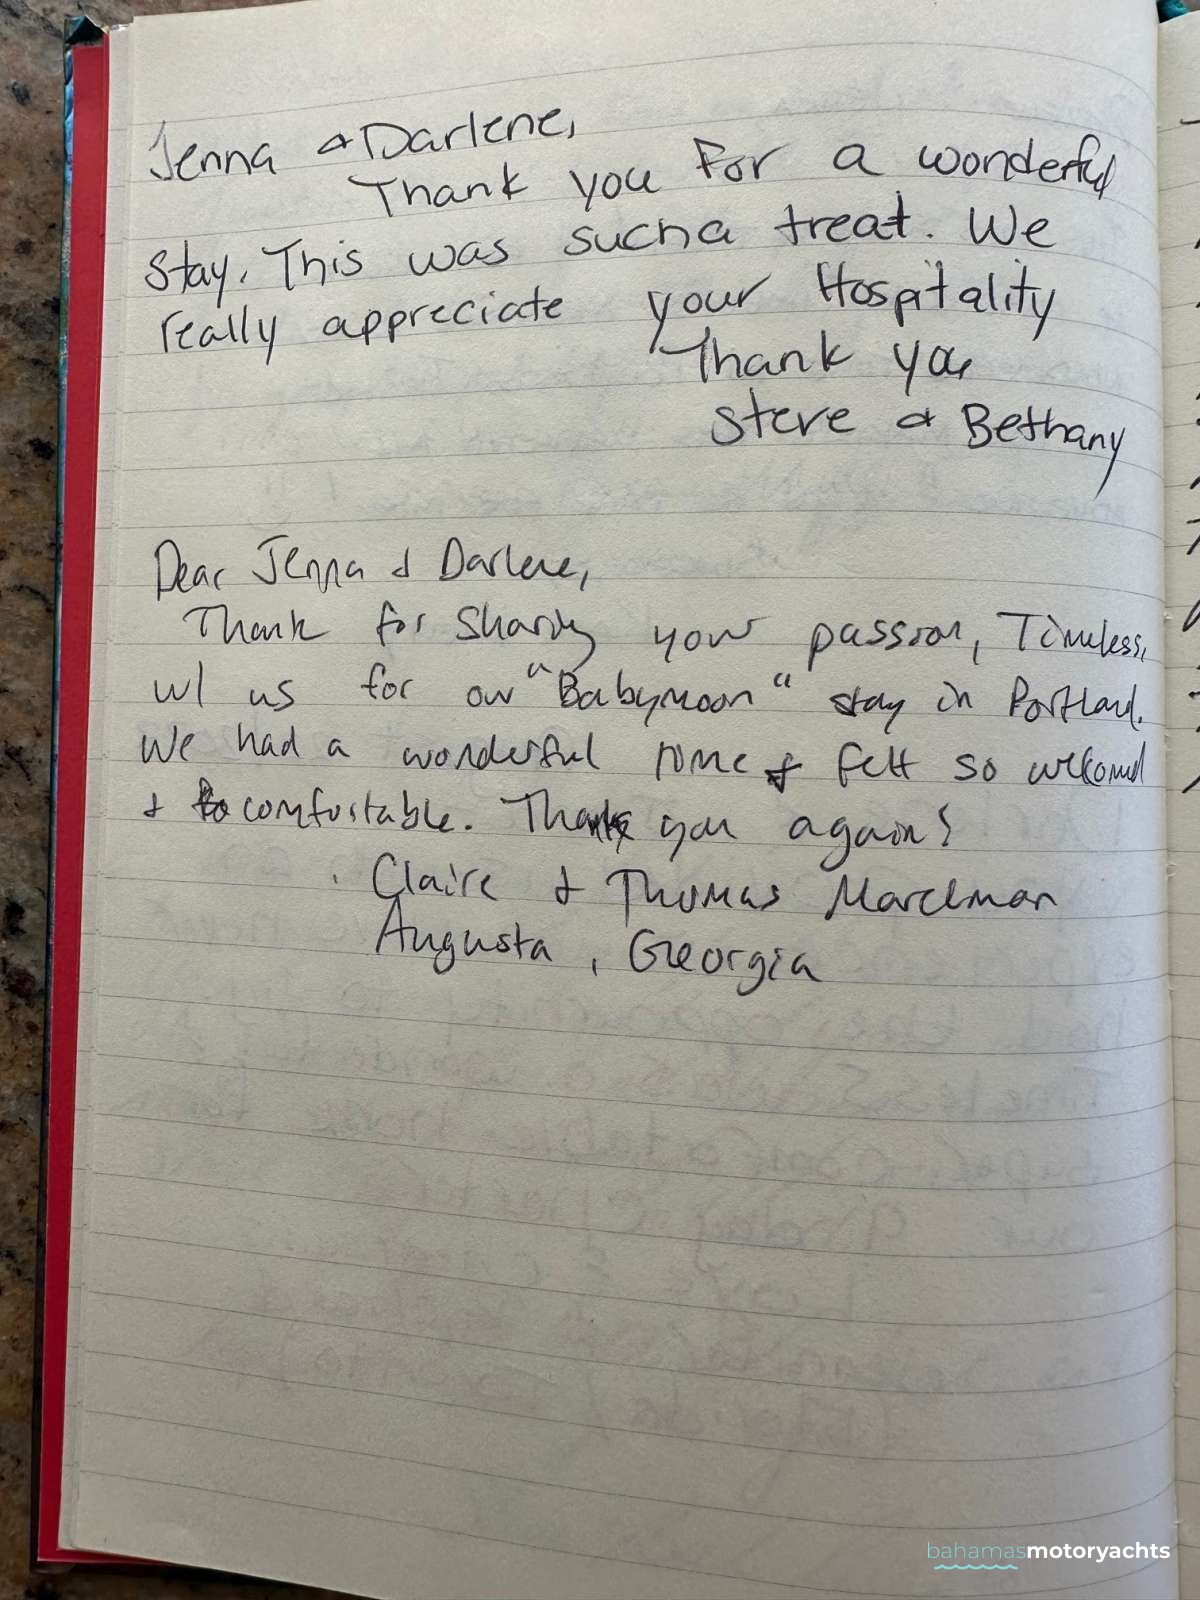 Jenna & Darlene,
Thank you For a wonderful
stay. This was such a treat. We
really appreciate your Hospitality
Thank you
Steve & Bethany
Dear Jenna & Darlene,
Thank for Sharing your passion, Timeless,
w/ us for our "Babymoon" stay in Portland.
We had a wonderful time & felt so welcomed
& comfortable. Thank you again!
Claire & Thomas
Augusta, Georgia
bahamasmotoryachts